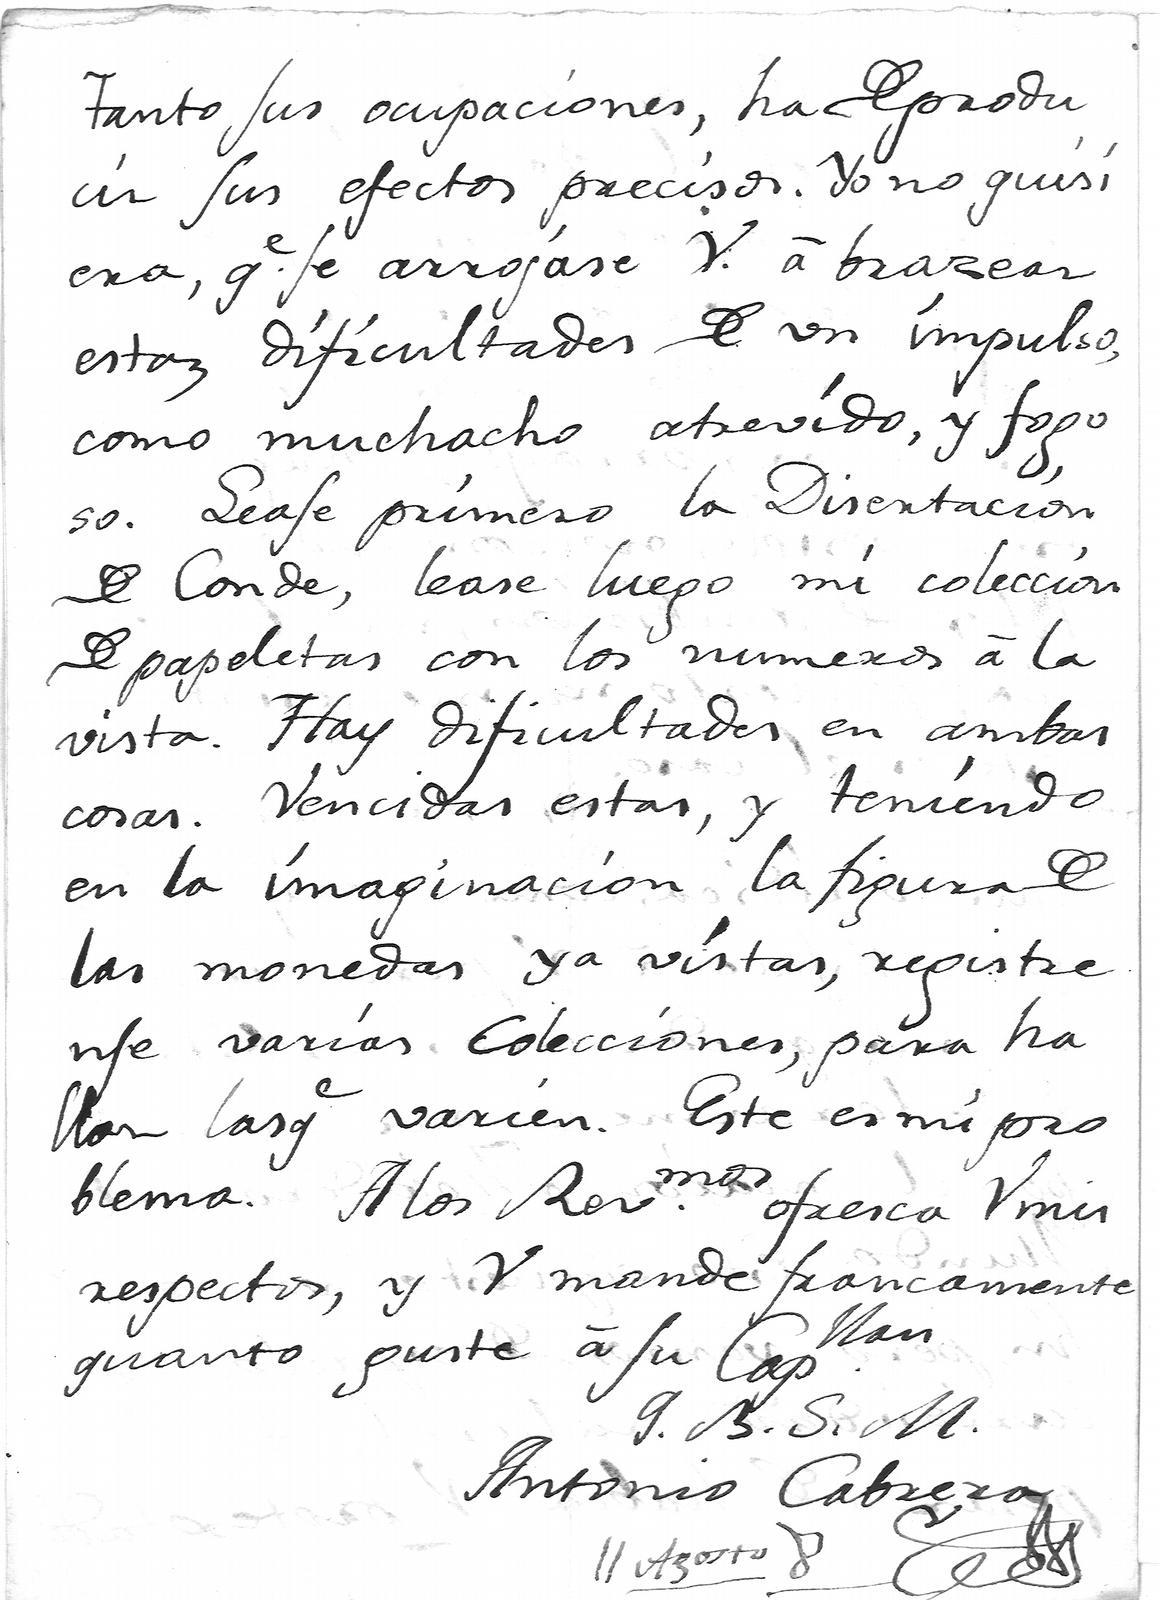 Tanto sus ocupaciones, ha de produ
cir sus efectos precisos. Yo no quisi
era, qe. se arrojáse V. ā brazear
estas dificultades de un impulso,
como muchacho atrevido, y fogo
so. Lease primero la Disertación
de Conde, lease luego mi colección
de papeletas con los numeros ā la
vista. Hay dificultades en ambas
cosas. Vencidas estas, y teniendo
en la imaginacion la figura de
las monedas ya vistas, registre
nse varias Colecciones, para ha
llar las qe varien. Este es mi pro
blema. A los Rev.mos ofresca V mis
respectos, y V mande francamente
quanto guste ā su Capllan.
Q. B. S. M.
Antonio Cabrera
11 Agosto 8